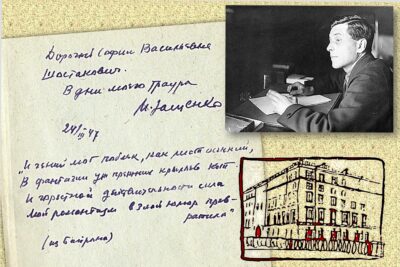 Дорогой Софии Васильевне
Шостакович.
В дни моего траура
М. Зощенко
24/III 47
"И гений мой поблек, как лист осенний,
В фантазии уж прежних крыльев нет
И горестной действительности сила
Мой романтизм в злой юмор прев-
ратила"
(из Байрона)